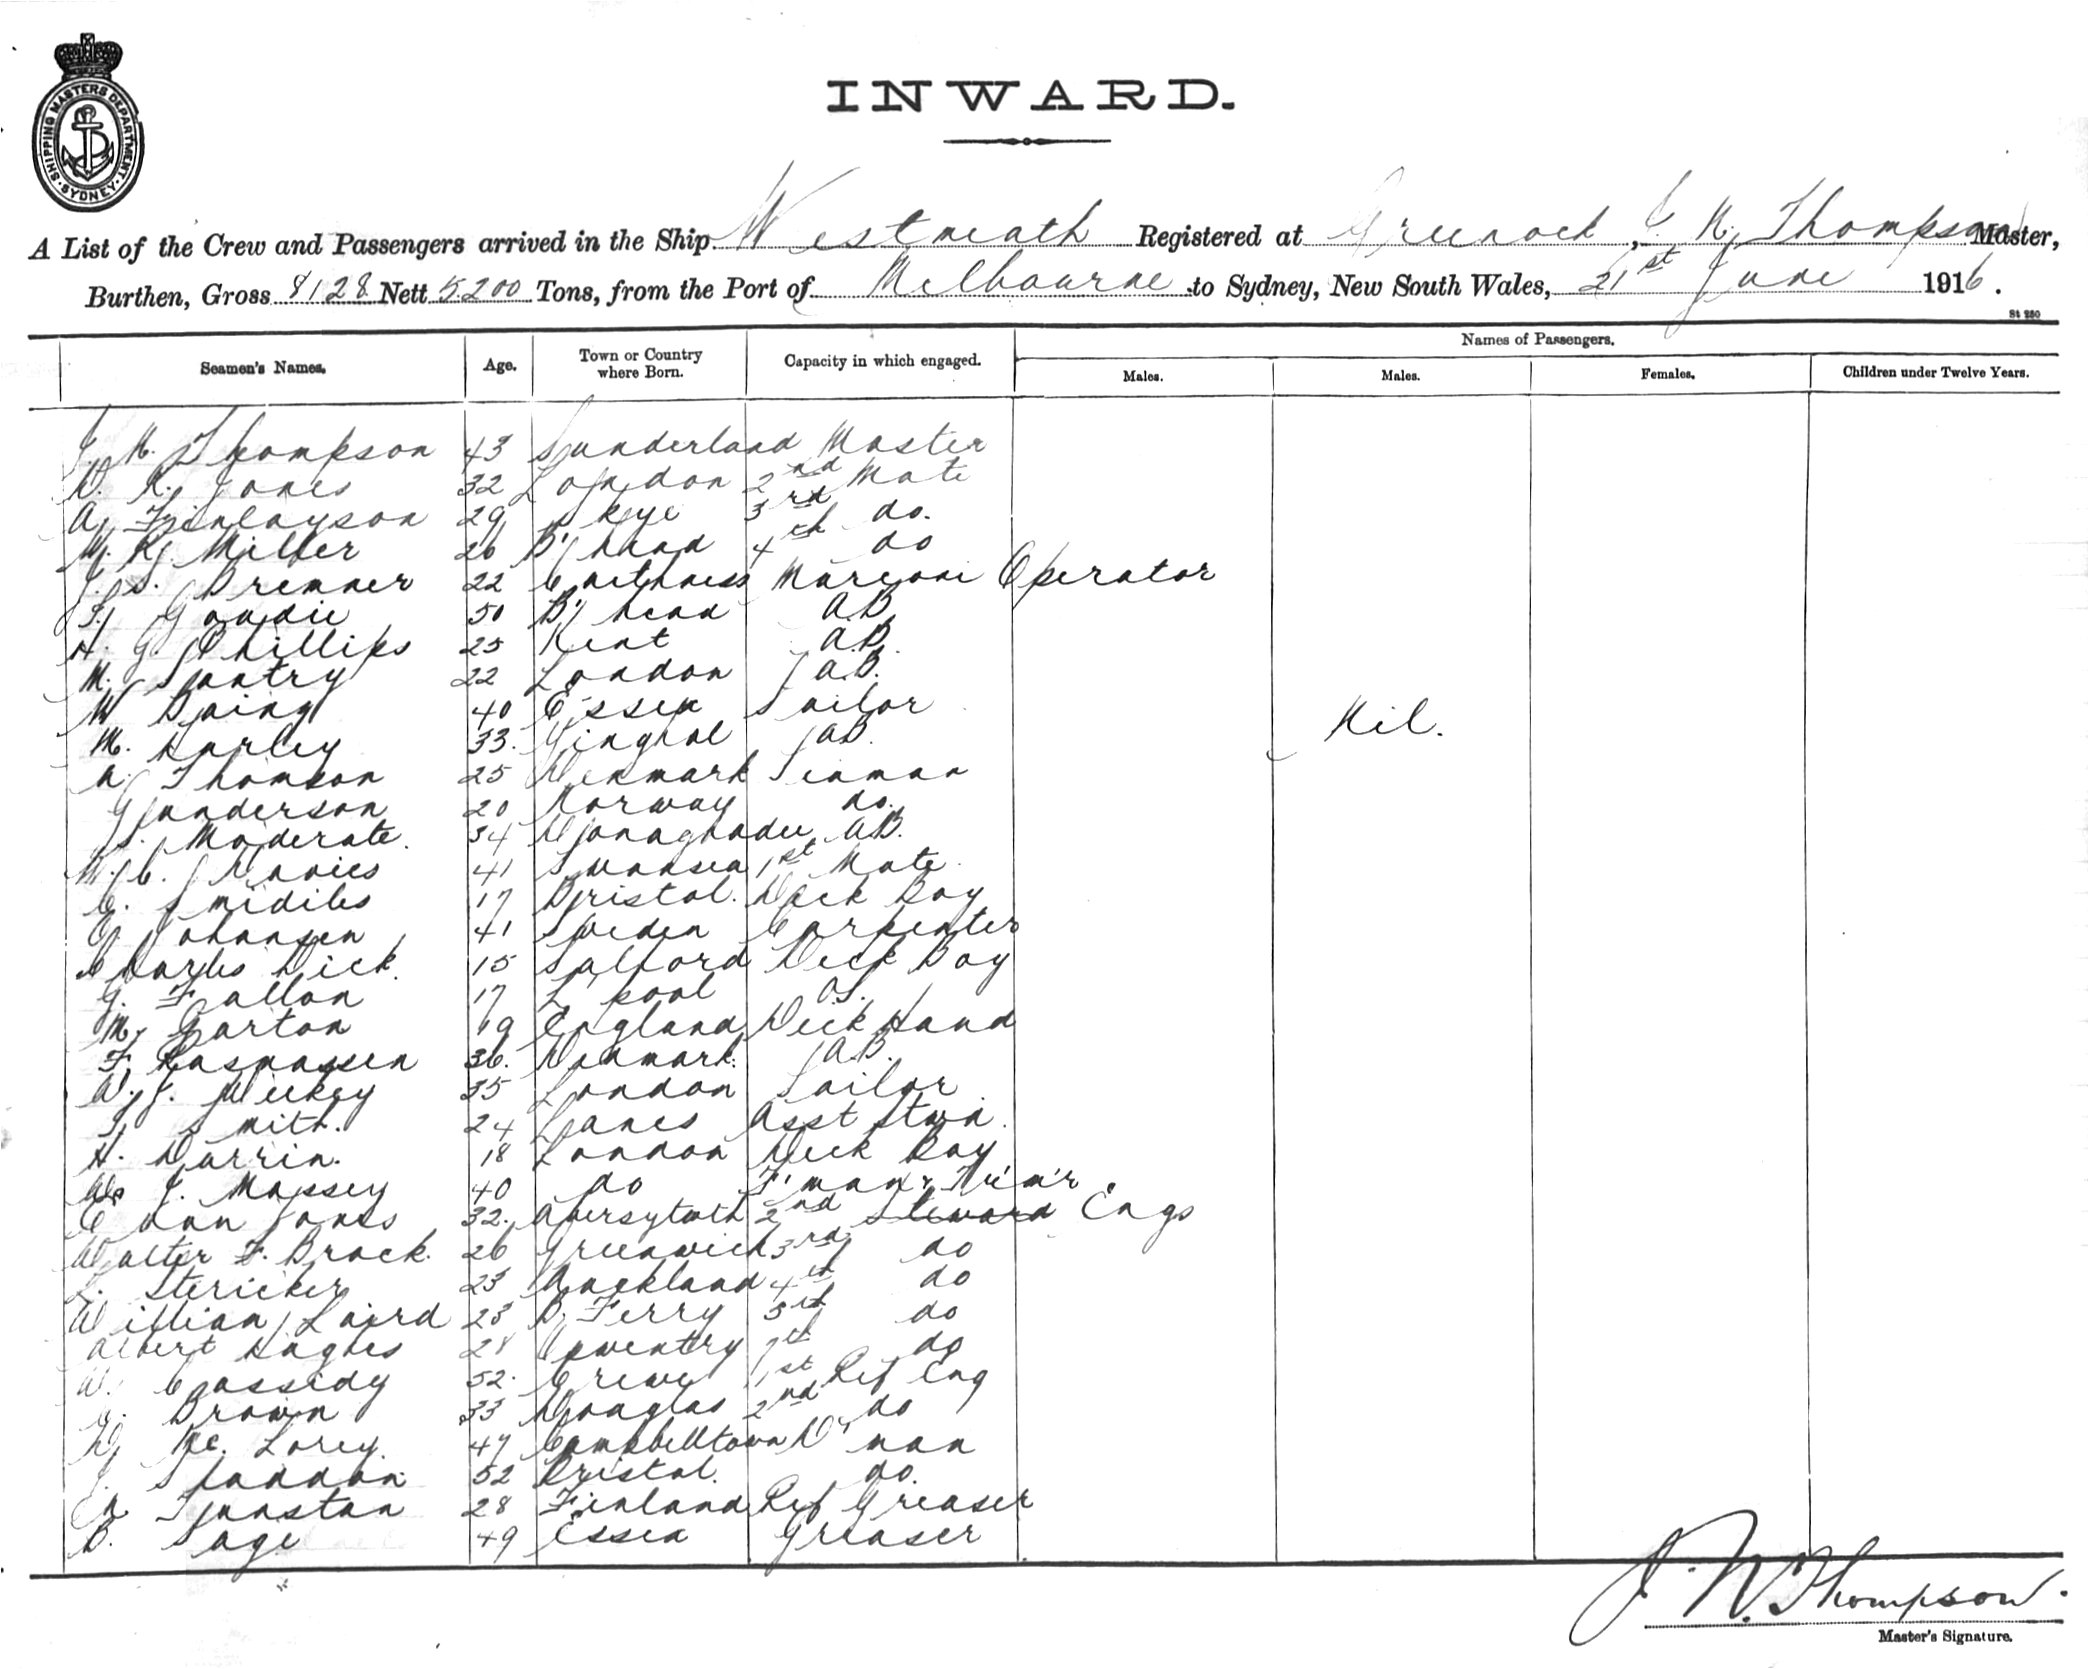 SHIPPING MASTERS DEPARTMENT
SYDNEY
INWARD.
A List of the Crew and Passengers arrived in the Ship Westmeath Registered at Greenock, J. N. Thompson Master,
Burthen, Gross 8128 Nett 5200 Tons, from the Port of Melbourne to Sydney, New South Wales, 21st June 1916.
St 280
Seamen's Names. Age. Town or Country where Born. Capacity in which engaged. Names of Passengers.
Males. Males. Females. Children under Twelve Years.
J. N. Thompson 43 Sunderland Master
D. R. Jones 32 London 2nd Mate
A. Finlayson 29 Skye 3rd do.
W. R. Miller 26 B'head 4th do
J. S. Bremner 22 Caithness Marconi Operator
T. Goudie 50 B'head A.B.
H. G. Phillips 25 Kent A.B.
M. Santry 22 London A.B.
W Baing 40 Essex Sailor
M. Hurley 33. A.B.
Nil.
A. Thomson 25 Denmark Seaman
Gunderson 20 Norway do.
S. Moderate. 34 Donaghadee A.B.
W. C. Davies 41 Swansea 1st Mate.
C. 17 Bristol. Deck Boy
Johansen 41 Sweden Carpenter
Charles Dick. 15 Salford Deck Boy
G. Fallon 17 L'pool O.S.
M. Garton 19 England Deck Hand
F. Rasmussen 36. Denmark. A.B.
W. J. 35 London Sailor
T. Smith. 24 Lancs Asst Stwd.
H. Darrin. 18 London Deck Boy
J. Massey 40 do F'man & Trim'r
Evan Jones 32. Abersytwth 2nd Steward Engs
Walter F. Brock. 26 Greenwich 3rd do
L. Stericker 23 Auckland 4th do
William Laird 23 B. Ferry 5th do
Albert Hughes 28 Coventry 7th do
W. Cassidy 52. Crewe 1st Ref Eng
J. Brown 33 Douglas 2nd do
D. Mc. Lorey. 47 Campbelltown D'man
J. 52 Bristol. do.
28 Finland Ref Greaser
B. Sage 49 Essex Greaser
J. N. Thompson.
Master's Signature.